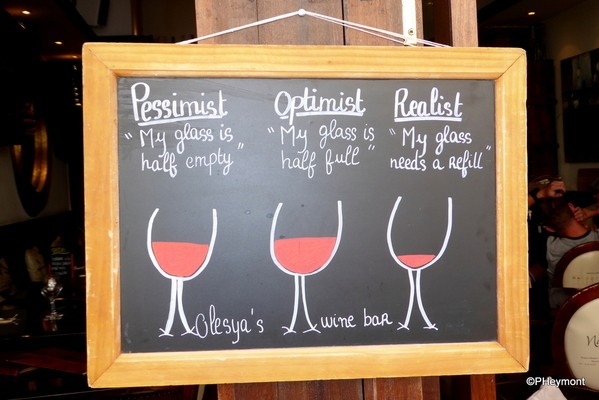 Pessimist
"My glass is
half empty"
Optimist
"My glass is
half full"
Realist
"My glass
needs a refill"
Olesya's wine bar
©PHeymont